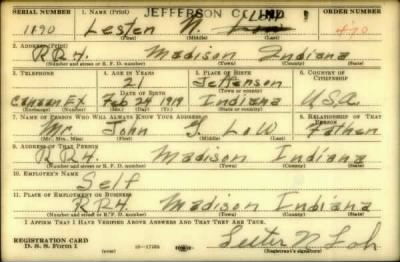 SERIAL NUMBER 1. NAME (Print) JEFFERSON CO. ORDER NUMBER
1890 Lester M
(First) (Middle) (Last)
2. ADDRESS (Print)
R R 4. Madison Indiana
(Number and street or R. F. D. number) (Town) (County) (State)
3. TELEPHONE 4. AGE IN YEARS 5. PLACE OF BIRTH 6. COUNTRY OF CITIZENSHIP
21 Jefferson
DATE OF BIRTH (Town or county)
Canaan EX. Feb 24 1919 Indiana U.S.A.
(Exchange) (Number) (Mo.) (Day) (Yr.) (State or country)
7. NAME OF PERSON WHO WILL ALWAYS KNOW YOUR ADDRESS 8. RELATIONSHIP OF THAT PERSON
Mr. John Father
(Mr., Mrs., Miss) (First) (Middle) (Last)
9. ADDRESS OF THAT PERSON
R R 4. Madison Indiana
(Number and street or R. F. D. number) (Town) (County) (State)
10. EMPLOYER'S NAME
Self
11. PLACE OF EMPLOYMENT OR BUSINESS
R R 4. Madison Indiana
(Number and street or R. F. D. number) (Town) (County) (State)
I AFFIRM THAT I HAVE VERIFIED ABOVE ANSWERS AND THAT THEY ARE TRUE.
REGISTRATION CARD
D. S. S. Form 1 Lester
(Registrant's signature)